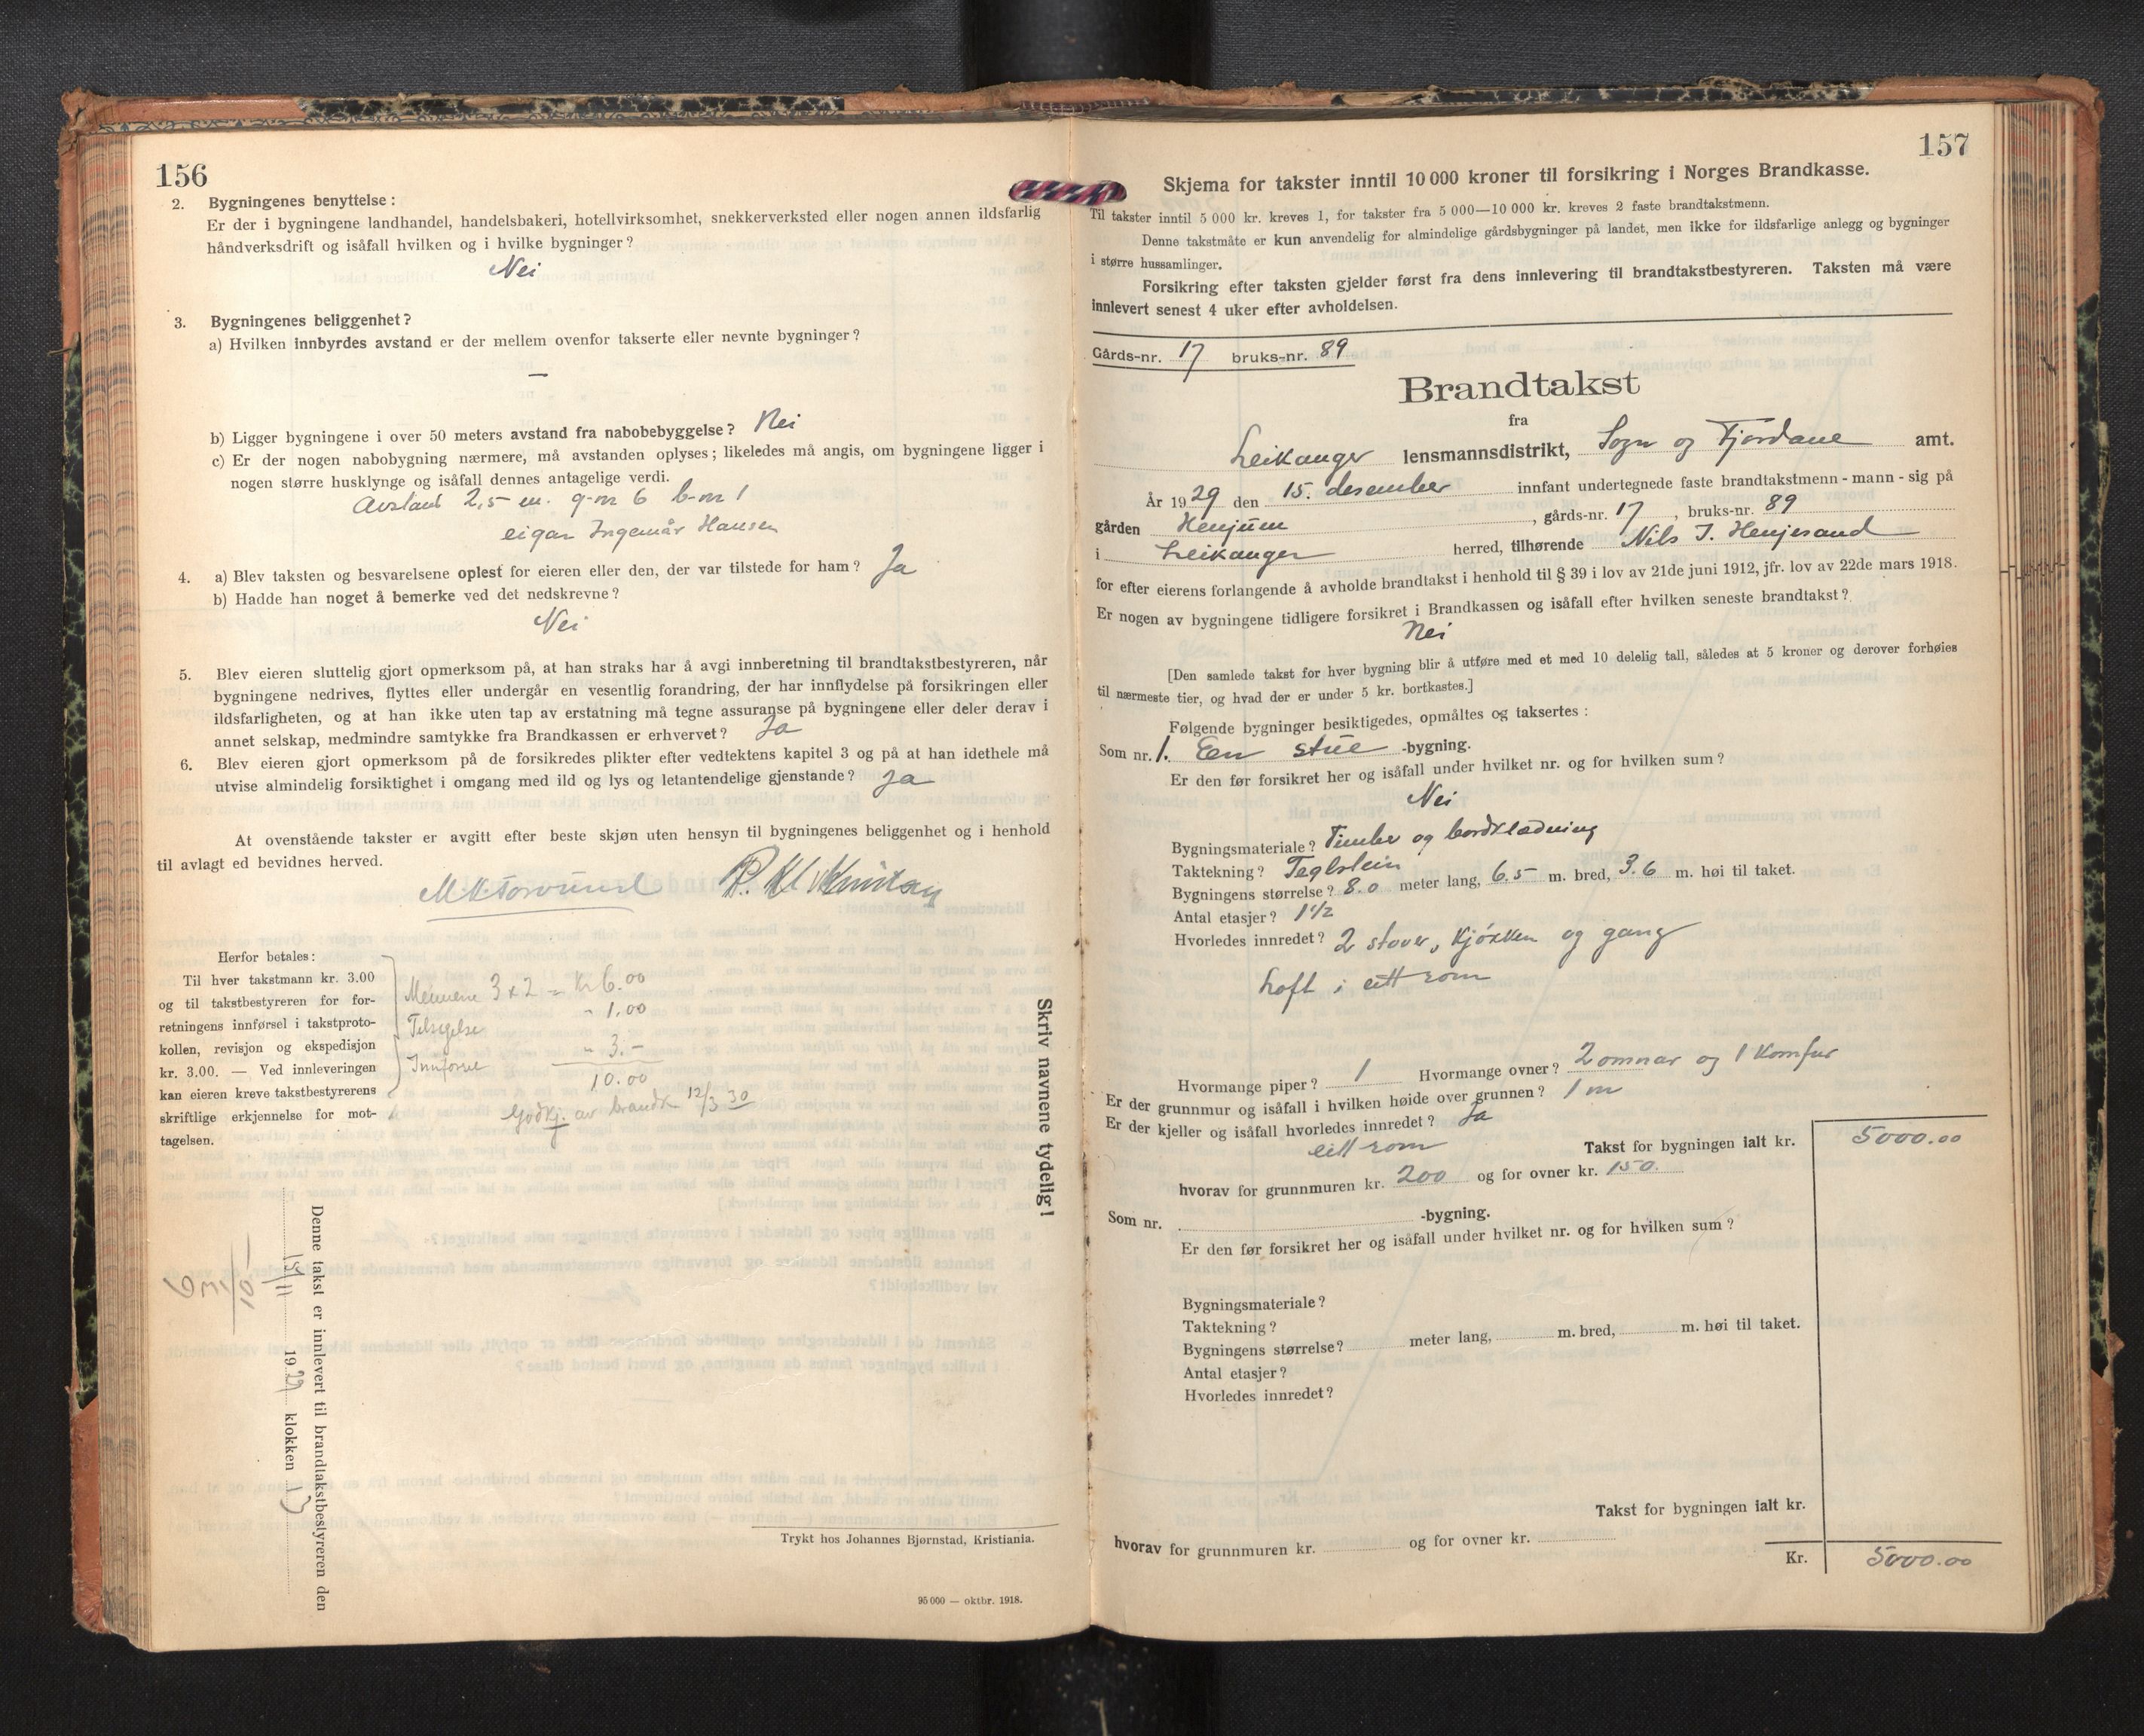 156
2. Bygningenes benyttelse :
Er der i bygningene landhandel, handelsbakeri, hotellvirksomhet, snekkerverksted eller nogen annen ildsfarlig
håndverksdrift og isåfall hvilken og i hvilke bygninger ?
Nei
3. Bygningenes beliggenhet ?
a) Hvilken innbyrdes avstand er der mellem ovenfor takserte eller nevnte bygninger ?
—
b) Ligger bygningene i over 50 meters avstand fra nabobebyggelse ? Nei
c) Er der nogen nabobygning nærmere, må avstanden oplyses ; likeledes må angis, om bygningene ligger i
nogen større husklynge og isåfall dennes antagelige verdi.
Avstand 2,5 m. g-nr 6 b-nr 1
eigar Ingemår Hansen
4. a) Blev taksten og besvarelsene oplest for eieren eller den, der var tilstede for ham ? Ja
b) Hadde han noget å bemerke ved det nedskrevne ?
Nei
5. Blev eieren sluttelig gjort opmerksom på, at han straks har å avgi innberetning til brandtakstbestyreren, når
bygningene nedrives, flyttes eller undergår en vesentlig forandring, der har innflydelse på forsikringen eller
ildsfarligheten, og at han ikke uten tap av erstatning må tegne assuranse på bygningene eller deler derav i
annet selskap, medmindre samtykke fra Brandkassen er erhvervet ? Ja
6. Blev eieren gjort opmerksom på de forsikredes plikter efter vedtektens kapitel 3 og på at han idethele må
utvise almindelig forsiktighet i omgang med ild og lys og letantendelige gjenstande ? Ja
At ovenstående takster er avgitt efter beste skjøn uten hensyn til bygningenes beliggenhet og i henhold
til avlagt ed bevidnes herved.
Herfor betales :
Til hver takstmann kr. 3.00
og til takstbestyreren for for-
retningens innførsel i takstproto-
kollen, revisjon og ekspedisjon
kr. 3.00. — Ved innleveringen
kan eieren kreve takstbestyrerens
skriftlige erkjennelse for mot-
tagelsen.
Mennene 3 x 2 = Kr 6.00
Tilsigelse " 1,00
Innførsel " 3.–
10.00
Godkj. av brandk. 12/3 30
Skriv navnene tydelig !
Denne takst er innlevert til brandtakstbestyreren den
1929 klokken 13
Trykt hos Johannes Bjørnstad, Kristiania.
95 000 — oktbr. 1918.
157
Skjema for takster inntil 10 000 kroner til forsikring i Norges Brandkasse.
Til takster inntil 5 000 kr. kreves 1, for takster fra 5 000—10 000 kr. kreves 2 faste brandtakstmenn.
Denne takstmåte er kun anvendelig for almindelige gårdsbygninger på landet, men ikke for ildsfarlige anlegg og bygninger
i større hussamlinger.
Forsikring efter taksten gjelder først fra dens innlevering til brandtakstbestyreren. Taksten må være
innlevert senest 4 uker efter avholdelsen.
Gårds-nr. 17 bruks-nr. 89
Brandtakst
fra
Leikanger lensmannsdistrikt, Sogn og Fjordane amt.
År 1929 den 15. desember innfant undertegnede faste brandtakstmenn - mann - sig på
gården Henjum , gårds-nr. 17 , bruks-nr. 89
i Leikanger herred, tilhørende Nils J. Henjesand
for efter eierens forlangende å avholde brandtakst i henhold til § 39 i lov av 21de juni 1912, jfr. lov av 22de mars 1918.
Er nogen av bygningene tidligere forsikret i Brandkassen og isåfall efter hvilken seneste brandtakst ?
Nei
[Den samlede takst for hver bygning blir å utføre med et med 10 delelig tall, således at 5 kroner og derover forhøies
til nærmeste tier, og hvad der er under 5 kr. bortkastes.]
Følgende bygninger besiktigedes, opmåltes og taksertes :
Som nr. 1. Een stue -bygning.
Er den før forsikret her og isåfall under hvilket nr. og for hvilken sum ?
Nei
Bygningsmateriale ? Timber og bordklædning
Taktekning ? Teglstein
Bygningens størrelse ? 8.0 meter lang, 6.5 m. bred, 3.6 m. høi til taket.
Antal etasjer ? 1 1/2
Hvorledes innredet ? 2 stover, kjøkken og gang
Loft i eitt rom
Hvormange piper ? 1 Hvormange ovner ? 2 omnar og 1 Komfur
Er der grunnmur og isåfall i hvilken høide over grunnen ? 1 m
Er der kjeller og isåfall hvorledes innredet ? Ja
eitt rom
Takst for bygningen ialt kr. 5000.00
hvorav for grunnmuren kr. 200 og for ovner kr. 150.
Som nr. -bygning.
Er den før forsikret her og isåfall under hvilket nr. og for hvilken sum ?
Bygningsmateriale ?
Taktekning ?
Bygningens størrelse ? meter lang, m. bred, m. høi til taket.
Antal etasjer ?
Hvorledes innredet ?
Takst for bygningen ialt kr.
hvorav for grunnmuren kr. og for ovner kr.
Kr. 5000.00